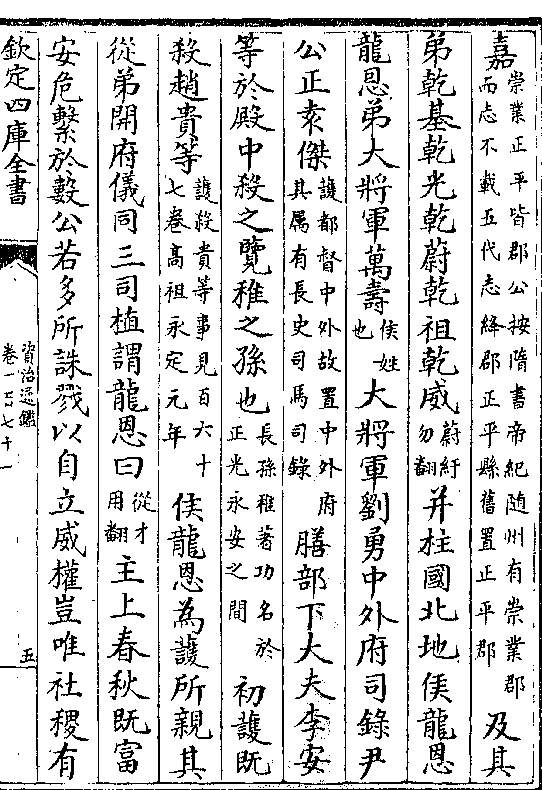 嘉崇業正平皆郡公按隋書帝紀随州有崇業郡而志不載五代志絳郡正平縣舊置正平郡及其
弟乾基乾光乾蔚乾祖乾威蔚紆勿翻并柱國北地侯龍恩
龍恩弟大將軍萬壽侯姓也大將軍劉勇中外府司錄尹
公正袁傑護都督中外故置中外府其属有長史司馬司錄膳部下大夫李安
等於殿中殺之覽稚之孫也長孫稚著功名於正光永安之間初護既
殺趙貴等護殺貴等事見百六十七卷高祖永定元年侯龍恩為護所親其
從弟開府儀同三司植謂龍恩曰從才用翻主上春秋既富
安危繫於數公若多所誅戮以自立威權豈唯社稷有
欽定四庫全書
資治通鑑
卷一百七十一
五